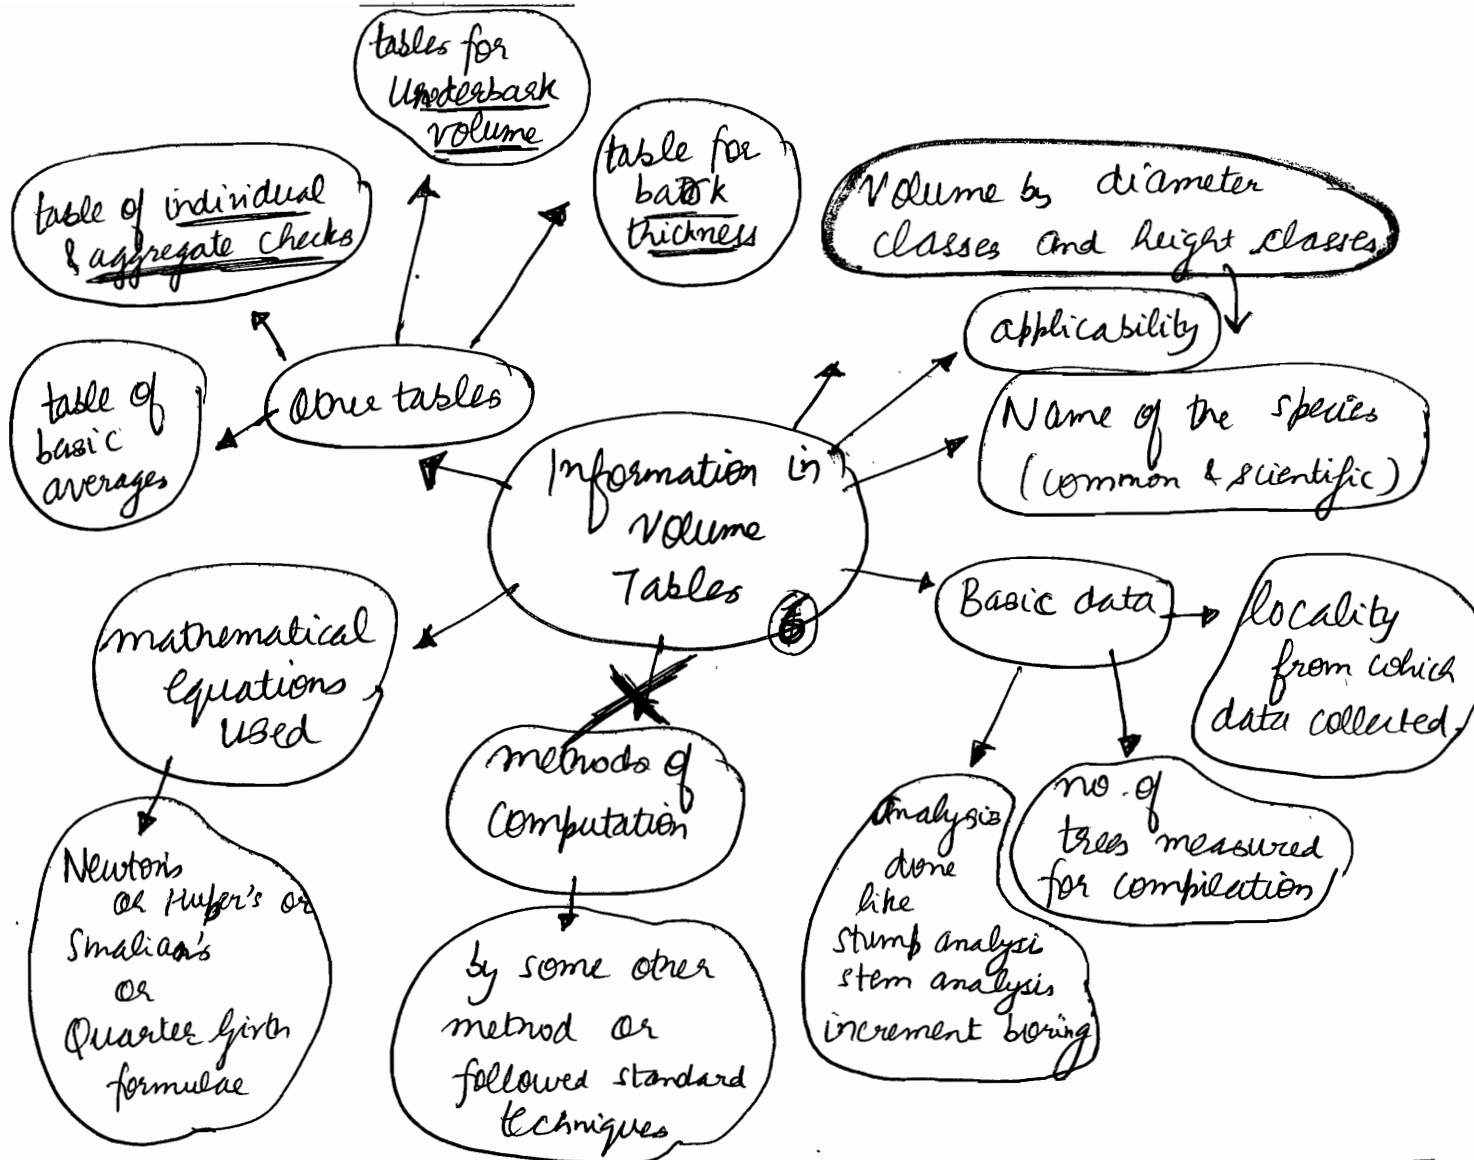 tables for
Underbark
volume
table for
bark
thickness
table of individual
& aggregate checks
Volume by diameter
classes and height classes
applicability
Other tables
table of
basic
averages
Name of the species
(common & scientific)
Information in
Volume
Tables
Basic data
locality
from which
data collected.
mathematical
equations
used
methods of
computation
analysis
done
like
stump analysis
stem analysis
increment boring
no. of
trees measured
for compilation
Newton's
or Huber's or
Smalian's
or
Quarter Girth
formulae
by some other
method or
followed standard
techniques